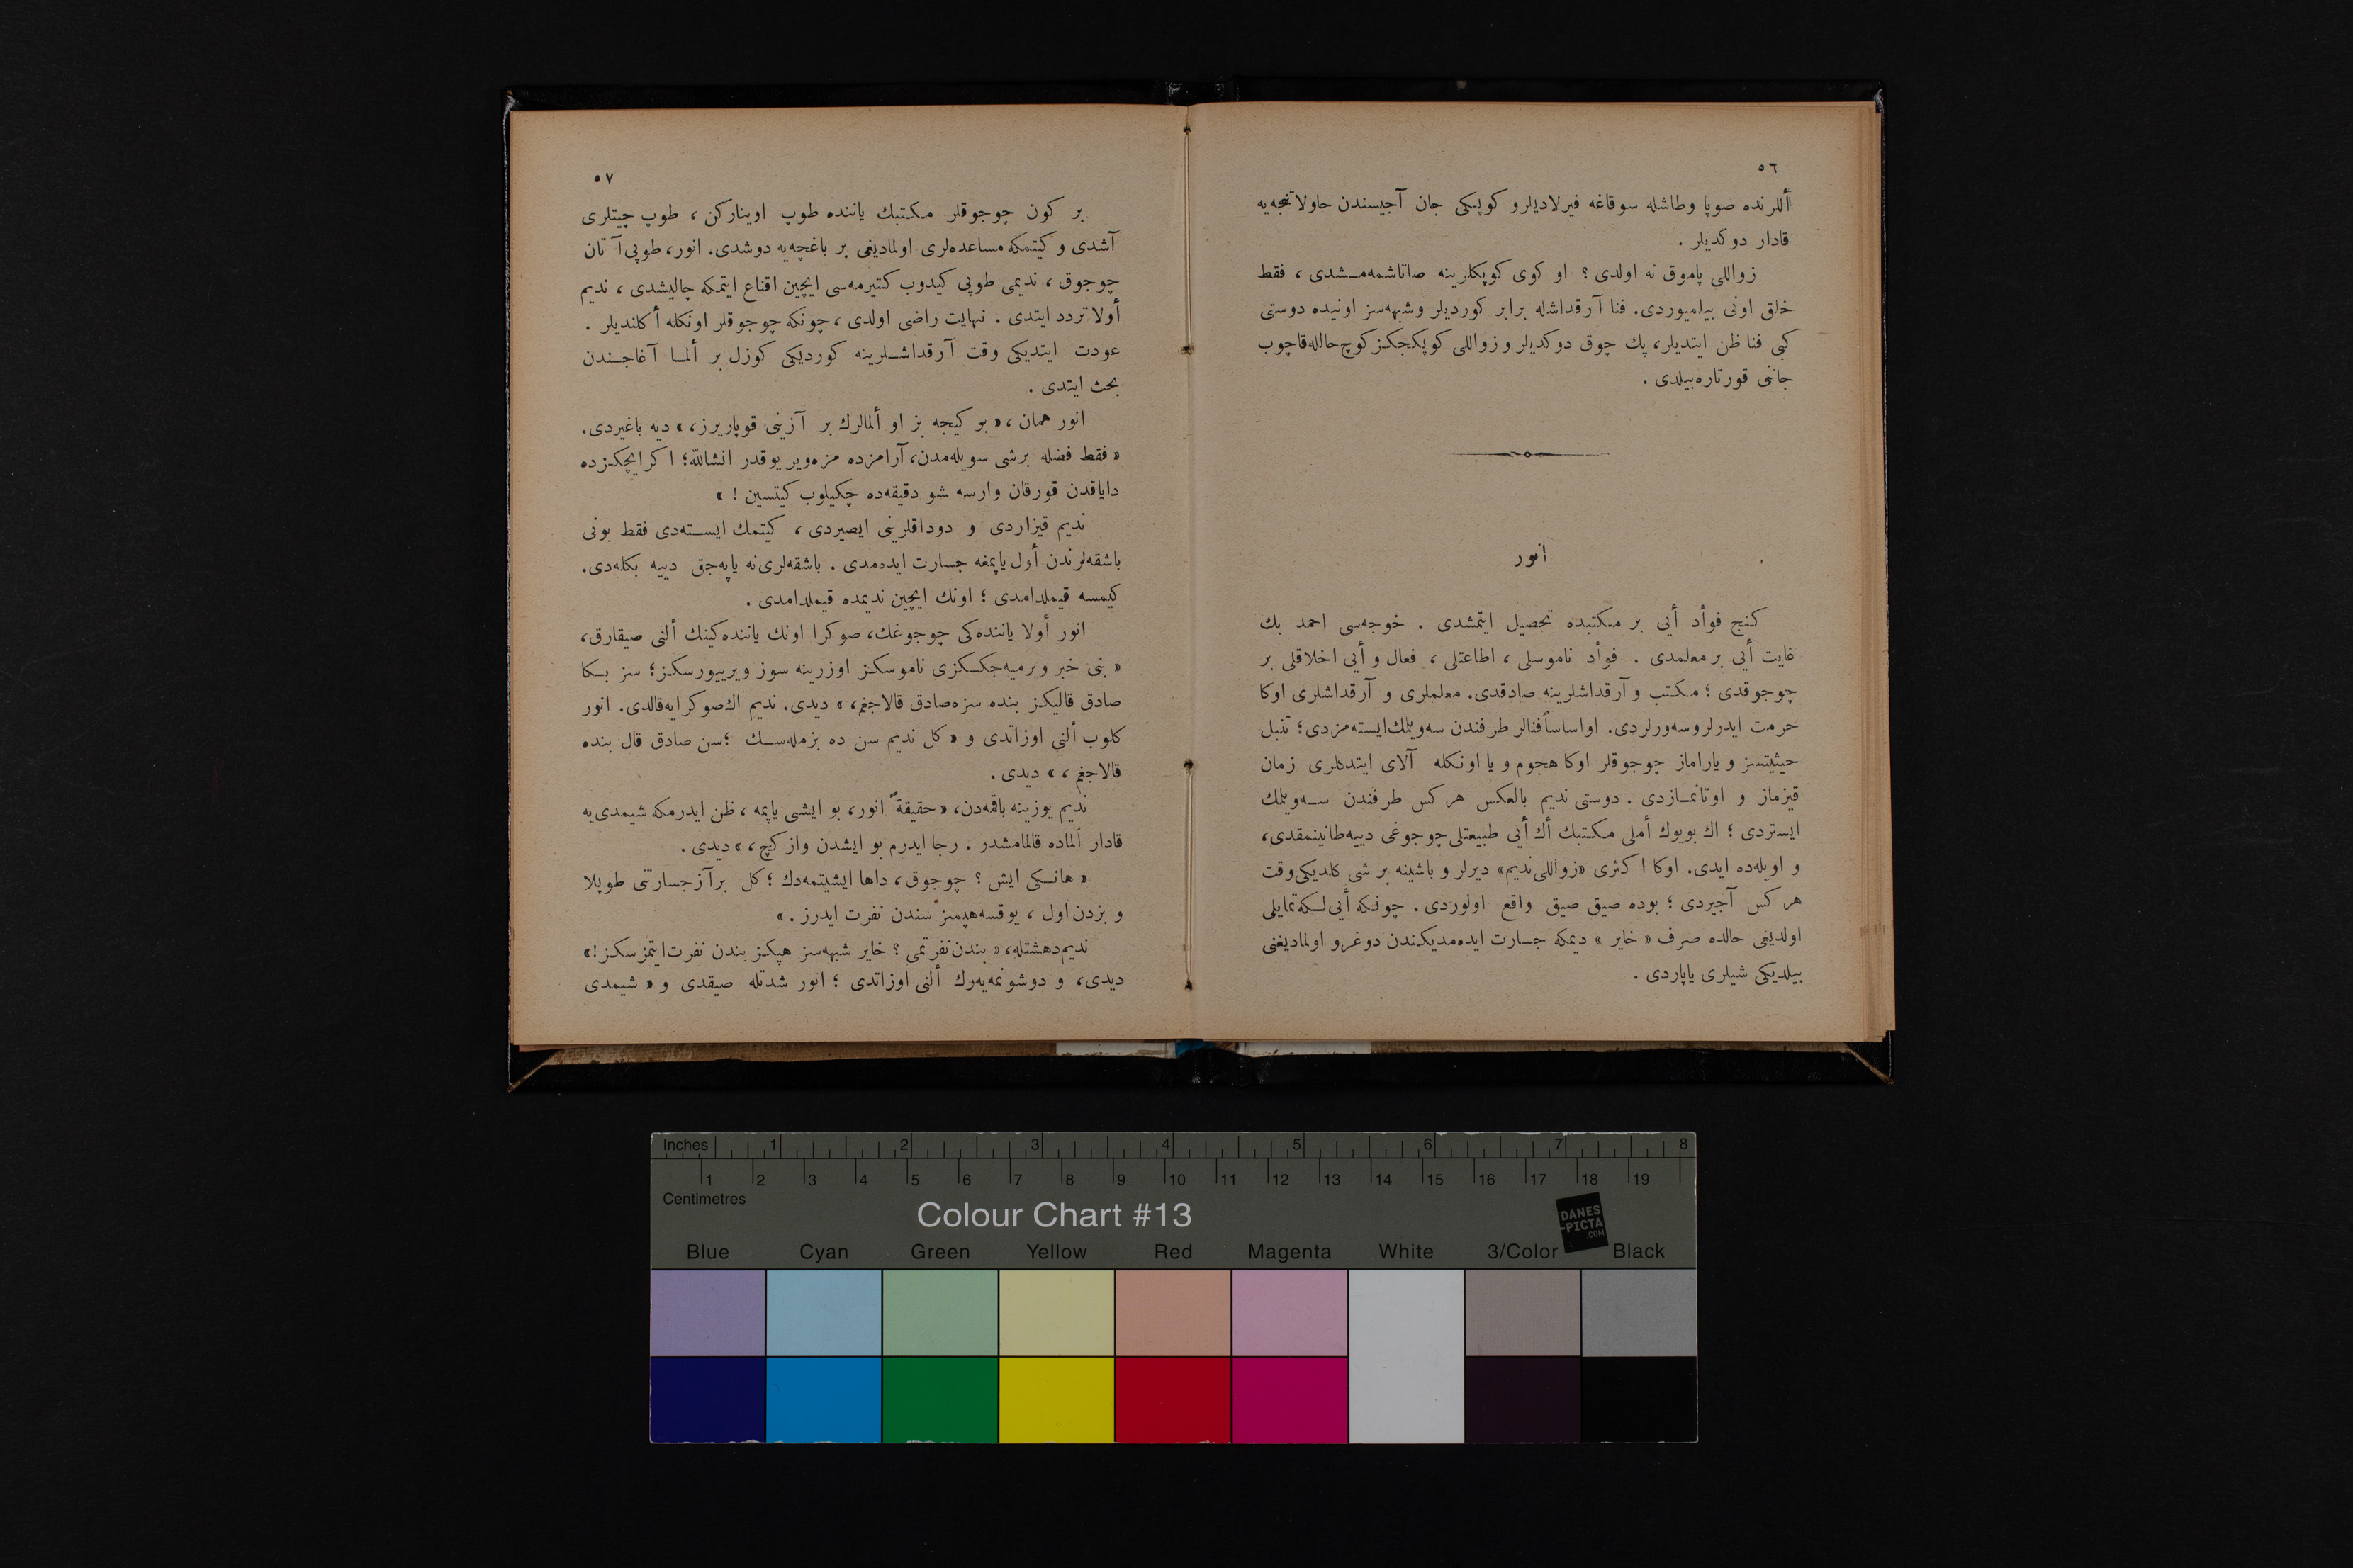 ٥٦
أللرنده صوپا وطاشله سوقاغه فیرلادیلرو کوپکی جان آجیسندن حاولاتنجه‌یه
قادار دوکدیلر .
زواللی پاموق نه اولدی ؟ او کوی کوپکلرینه صاتاشمه‌مشدی ، فقط
خلق اونی بیلمیوردی. فنا آرقداشله برابر کوردیلر وشبهه‌سز اونیده دوستی
کبی فنا ظن ایتدیلر، پك چوق دوکدیلر و زواللی کوپکجکز کوچ حالله قاچوب
جاننی قورتاره‌بیلدی .
انور
کنج فوأد أیی بر مکتبده تحصیل ایتمشدی . خوجه‌سی احمد بك
غایت أیی بر معلمدی . فوأد ناموسلی ، اطاعتلی ، فعال و أیی اخلاقلی بر
چوجوقدی ؛ مکتب و آرقداشلرینه صادقدی. معلملری و آرقداشلری اوکا
حرمت ایدرلر وسه‌ورلردی. اواساساً فنالر طرفندن سه‌ویلمك ایسته‌مزدی؛ تنبل
حیثیتسز و یاراماز چوجوقلر اوکا هجوم و یا اونکله آلای ایتدکلری زمان
قیزماز و اوتانمازدی . دوستی ندیم بالعکس هر کس طرفندن سه‌ویلمك
ایستردی ؛ اك بویوك أملی مکتبك أك أیی طبیعتلی چوجوغی دییه طانینمقدی،
و اویله‌ده ایدی. اوکا اکثری «زواللی ندیم» دیرلر و باشینه بر شی کلدیکی وقت
هر کس آجیردی ؛ بوده صیق صیق واقع اولوردی . چونکه أیی‌لکه تمایلی
اولدیغی حالده صرف « خایر » دیمکه جسارت ایده‌مدیکندن دوغرو اولمادیغنی
بیلدیکی شیلری یاپاردی .
٥٧
بر کون چوجوقلر مکتبك یاننده طوپ اوینارکن ، طوپ چیتلری
آشدی و کیتمکه مساعده‌لری اولمادیغی بر باغچه‌یه دوشدی. انور، طوپی آتان
چوجوق ، ندیمی طوپی کیدوب کتیرمه‌سی ایچین اقناع ایتمکه چالیشدی ، ندیم
أولا تردد ایتدی . نهایت راضی اولدی ، چونکه چوجوقلر اونکله أکلندیلر .
عودت ایتدیکی وقت آرقداشلرینه کوردیکی کوزل بر ألما آغاجندن
بحث ایتدی .
انور همان ، « بو کیجه بز او ألمالرك بر آزینی قوپاریرز، » دیه باغیردی.
« فقط فضله برشی سویله‌مدن، آرامزده مزه‌ویر یوقدر انشاالله؛ اکر ایچکزده
دایاقدن قورقان وارسه شو دقیقه‌ده چکیلوب کیتسین ! »
ندیم قیزاردی و دوداقلرینی ایصیردی ، کیتمك ایسته‌دی فقط بونی
باشقه‌لرندن أول یاپمغه جسارت ایده‌مدی . باشقه‌لری نه یاپه‌جق دییه بکله‌دی.
کیمسه قیملدامدی ؛ اونك ایچین ندیمده قیملدامدی .
انور أولا یاننده‌کی چوجوغك، صوکرا اونك یاننده‌کینك ألنی صیقارق،
« بنی خبر ویرمیه‌جککزی ناموسکز اوزرینه سوز ویرییورسکز؛ سز بکا
صادق قالیکز بنده سزه صادق قالاجغم، » دیدی. ندیم اك صوکرایه قالدی. انور
کلوب ألنی اوزاتدی و « کل ندیم سن ده بزمله‌سك ؛ سن صادق قال بنده
قالاجغم ، » دیدی .
ندیم یوزینه باقمه‌دن، « حقیقةً انور، بو ایشی یاپمه ، ظن ایدرمکه شیمدی‌یه
قادار ألماده قالمامشدر . رجا ایدرم بو ایشدن واز کچ ، » دیدی .
« هانکی ایش ؟ چوجوق ، داها ایشیتمه‌دك ؛ کل برآز جسارتنی طوپلا
و بزدن اول ، یوقسه هپمز سندن نفرت ایدرز . »
ندیم دهشتله، « بندن نفرتمی ؟ خایر شبهه‌سز هپکز بندن نفرت ایتمزسکز ! »
دیدی، و دوشونمه‌یه‌رك ألنی اوزاتدی ؛ انور شدتله صیقدی و « شیمدی
Inches 1 2 3 4 5 6 7 8
1 2 3 4 5 6 7 8 9 10 11 12 13 14 15 16 17 18 19
Centimetres
Colour Chart #13
DANES
-PICTA
.COM
Blue Cyan Green Yellow Red Magenta White 3/Color Black